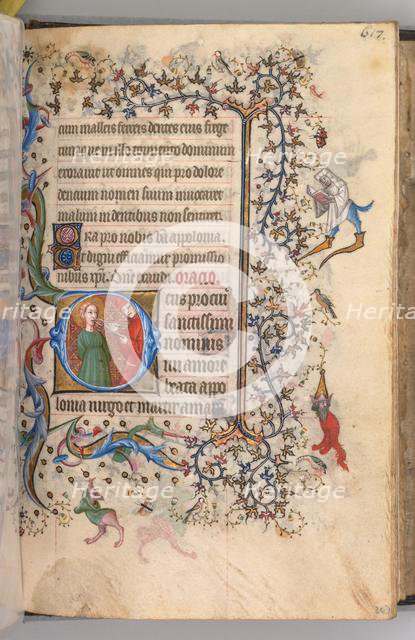 617.
cum malleis ferreis dentes eius
oravit ut omnes qui pro dolore
dencium nomen suum invocaret
malum in dentibus non sentiret
Ora pro nobis bā apolonia.
Et digni efficiamur promissio
nibus xp̄i. Oracio.
Deus pro cui
sanctissimi
nominis
tui amore
beata appo
lonia virgo et martir amara
Heritage
Heritage
Heritage
Heritage
Heritage
Heritage